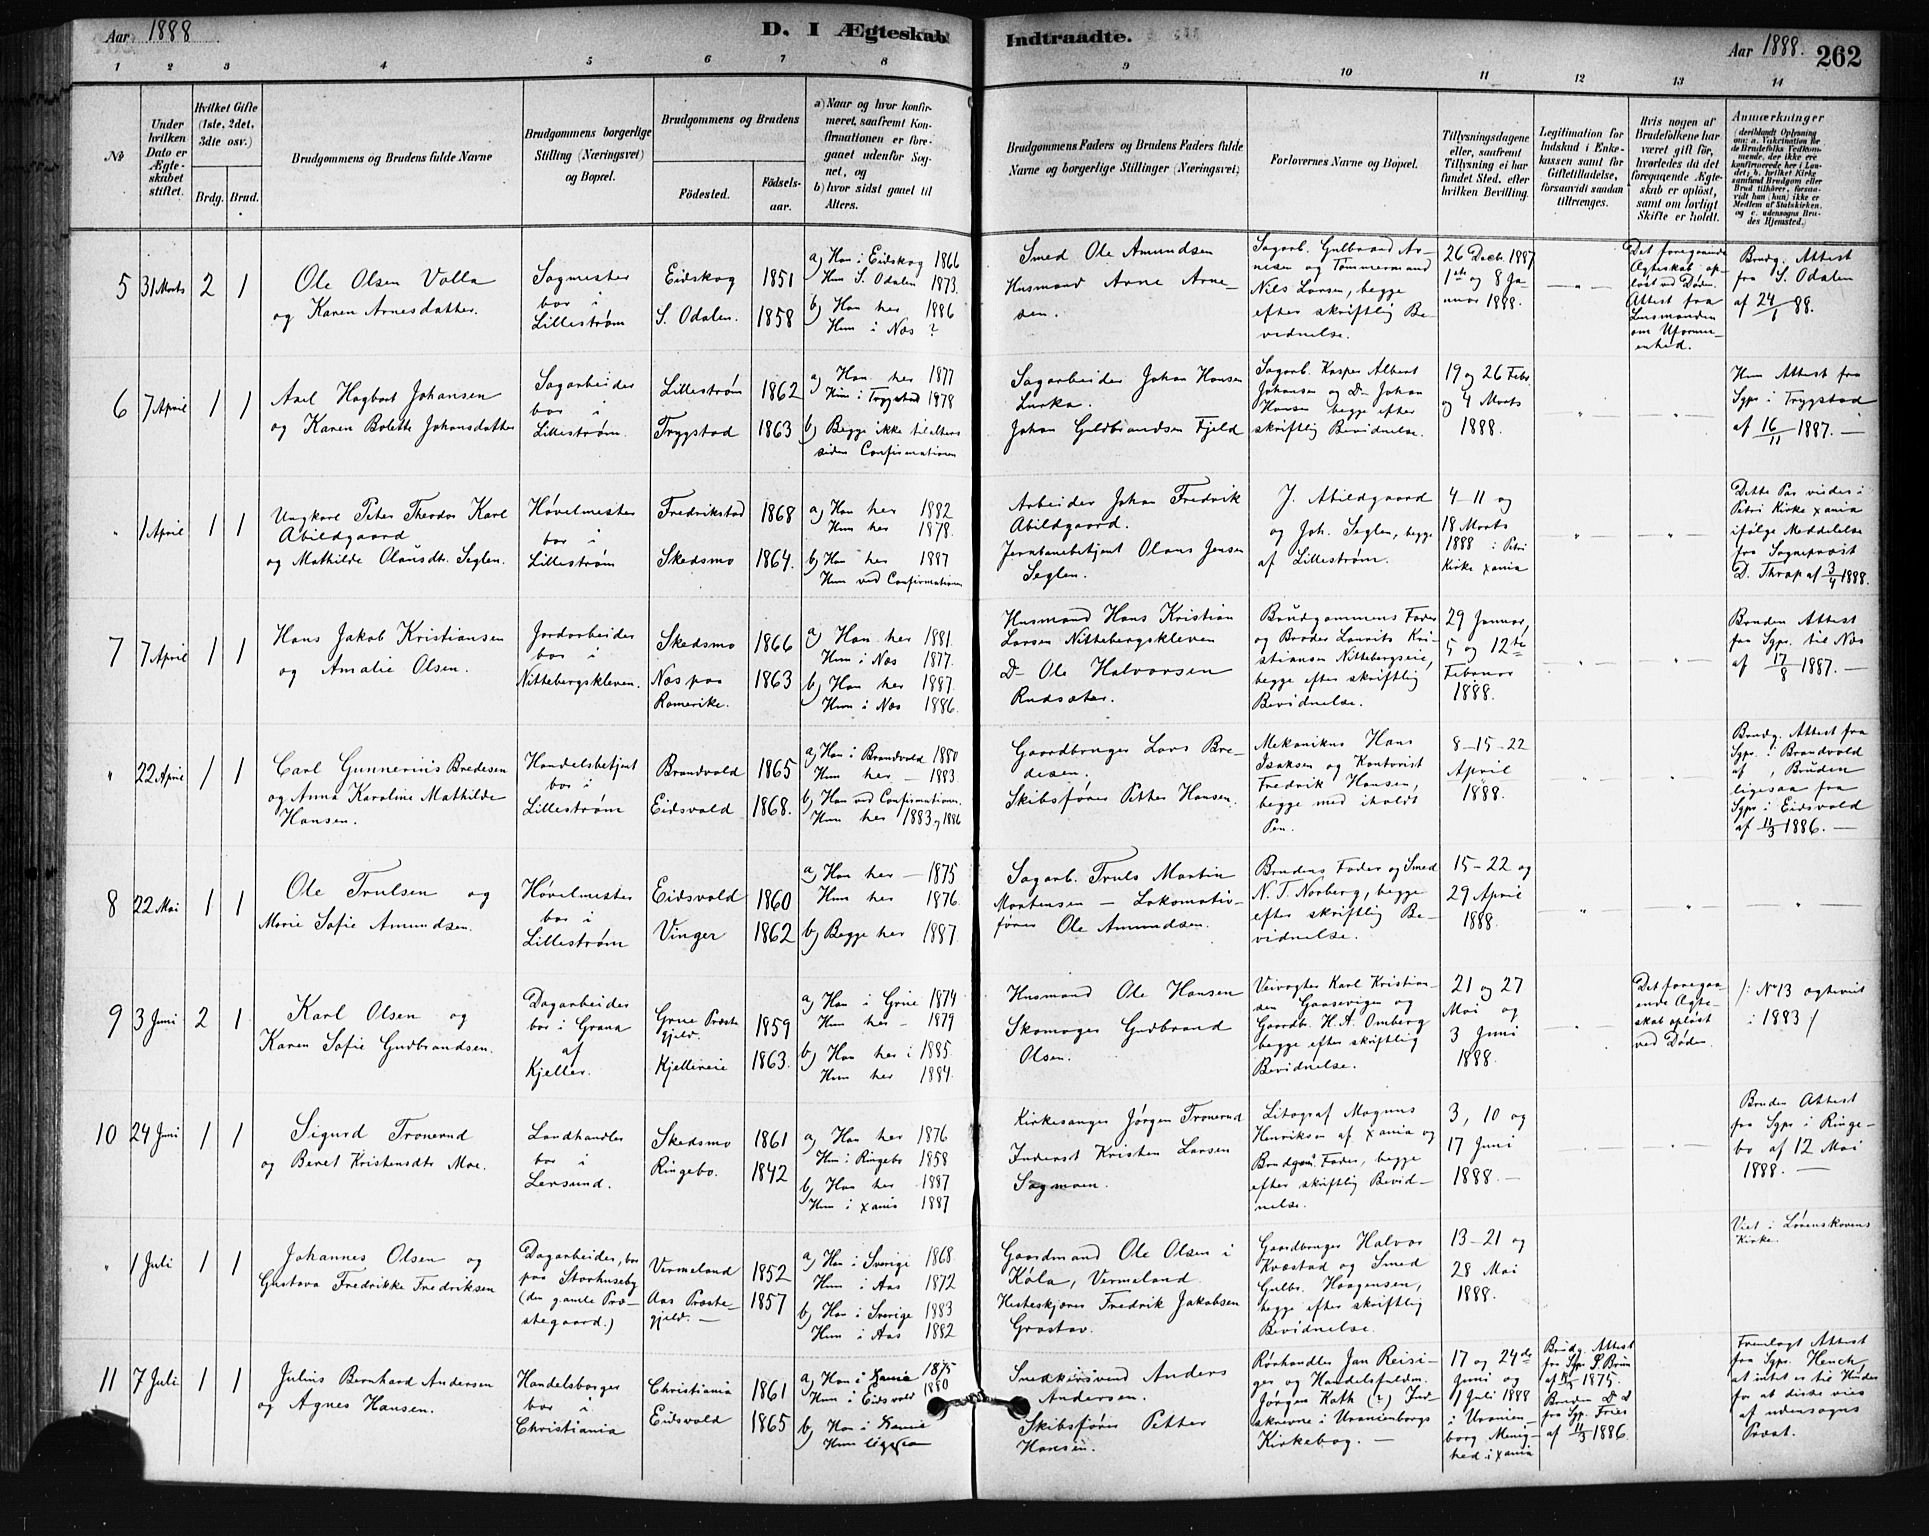 Aar 1888
D. I Ægteskab
Indtraadte.
Aar 1888.
262
1 2 3 4 5 6 7 8 9 10 11 12 13 14
No
Under hvilken Dato er Ægteskabet stiftet.
Hvilket Gifte (1ste, 2det, 3die osv.)
Brdg. Brud.
Brudgommens og Brudens fulde Navne
Brudgommens borgerlige Stilling (Næringsvei) og Bopæl.
Brudgommens og Brudens
Fødested.
Fødselsaar.
a) Naar og hvor konfirmeret, saafremt Konfirmationen er foregaaet udenfor Sognet, og
b) hvor sidst gaaet til Alters.
Brudgommens Faders og Brudens Faders fulde Navne og borgerlige Stillinger (Næringsvei)
Forlovernes Navne og Bopæl.
Tillysningsdagene eller, saafremt Tillysning ei har fundet Sted, efter hvilken Bevilling.
Legitimation for Indskud i Enkekassen samt for Giftetilladelse, forsaavidt saadan tiltrænges.
Hvis nogen af Brudefolkene har været gift før, hvorledes da det foregaaende Ægteskab er opløst, samt om lovligt Skifte er holdt.
Anmærkninger
(deriblandt Oplysning om: a. Vakcination for de Brudefolks Vedkommende, der ikke ere konfirmerede her i Landet; b. hvilket Kirkesamfund Brudgom eller Brud tilhører, forsaavidt han (hun) ikke er Medlem af Statskirken, og c. udensogns Brudes Hjemsted.)
5
31 Marts
2 1
Ole Olsen Volla
og Karen Arnesdatter.
Sagmester
bor i
Lillestrøm
Eidskog
S. Odalen.
1851
1858
a) Han i Eidskog 1866
Hun S. Odalen 1873.
b) Han her 1886
Hun i Næs ?
Smed Ole Amundsen
Husmand Arne Arnesen.
Sagarb. Gulbrand Arnesen og Tømmermand
Nils Larsen, begge
efter skriftlig Bevidnelse.
26 Decb. 1887
1ste og 8 Januar
1888.
Det foregaaende
Ægteskab opløst ved Døden.
Attest fra
Lensmanden
om Uformuenhed.
Brudg. Attest
fra S. Odalen
af 24/1 88.
6
7 April
1 1
Axel Hagbart Johansen
og Karen Bolette Johansdatter
Sagarbeider
bor i
Lillestrøm.
Lillestrøm
Trygstad
1862
1863
a) Han her 1877
Hun i Trygstad 1878
b) Begge ikke til alters
siden Confirmationen
Sagarbeider Johan Hansen
Lurka.
Johan Guldbrandsen Fjeld
Sagarb. Kasper Albert
Johansen og Do Johan
Hansen begge efter
skriftlig Bevidnelse.
19 og 26 Febr.
og 4 Marts
1888.
Hun Attest fra
Sgpr i Trygstad
af 16/11 1887. —
1 April
1 1
Ungkarl Peter Theodor Karl
Abildgaard
og Mathilde Olausdt. Seglen.
Høvelmester
bor i
Lillestrøm
Fredrikstad
Skedsmo
1868
1864.
a) Han her 1882
Hun her 1878.
b) Han her 1887
Hun ved Confirmationen
Arbeider Johan Fredrik
Abildgaard.
Jernbanebetjent Olaus Jensen
Seglen.
J. Abildgaard
og Joh. Seglen, begge
af Lillestrøm.
4-11 og
18 Marts
1888 i Petri
Kirke Xania
Dette Par vides i
Petri Kirke Xania
ifølge Meddelelse
fra Sogneprest
D. Thrap af 3/4 1888.
7
7 April
1 1
Hans Jakob Kristiansen
og Amalie Olsen.
Jordarbeider
bor i
Nittebergskleven.
Skedsmo
Næs paa
Romerike.
1866
1863
a) Han her 1881.
Hun i Næs 1877.
b) Han her 1887.
Hun i Næs 1886.
Husmand Hans Kristian
Larsen Nittebergskleven
Do Ole Halvorsen
Rudsæter.
Brudgommens Fader
og Broder Laurits Kristiansen Nittebergseie,
begge efter skriftlig
Bevidnelse.
29 Januar,
5 og 12te
Februar
1888.
Bruden Attest
fra Sgpr. til Næs
af 17/8 1887. —
22 April
1 1
Carl Gunnerius Bredesen
og Anna Karoline Mathilde
Hansen.
Handelsbetjent
bor i
Lillestrøm
Brandvold
Eidsvold
1865
1868.
a) Han i Brandvold 1880
Hun her — 1883
b) Han ved Confirmationen.
Hun her 1883 og 1886
Gaardbruger Lars Bredesen.
Skibsfører Petter Hansen.
Mekanikus Hans
Isaksen og Kontorist
Fredrik Hansen,
begge med iholdt
Pen.
8-15-22
April
1888.
Brudg. Attest fra
Sgpr. i Brandvold
af , Bruden
ligesaa fra
Sgpr i Eidsvold
af 11/3 1886. —
8
22 Mai
1 1
Ole Trulsen og
Marie Sofie Amundsen.
Høvelmester
bor i
Lillestrøm
Eidsvold
Vinger
1860
1862
a) Han her — 1875
Hun her 1876.
b) Begge her 1887.
Sagarb. Truls Martin
Mortensen — Lokomotivfører Ole Amundsen.
Brudens Fader og Smed
N. T. Norberg, begge
efter skriftlig Bevidnelse.
15-22 og
29 April
1888.
9
3 Juni
2 1
Karl Olsen og
Karen Sofie Gudbrandsen.
Dagarbeider
bor i Grana
af
Kjeller.
Grue Præstegjeld.
Kjellereie
1859
1863.
a) Han i Grue 1874
Hun her — 1879
b) Han her i 1885.
Hun her 1884.
Husmand Ole Hansen
Skomager Gudbrand
Olsen.
Veivogter Karl Kristiansen Gaasevigen og
Gaardb. H. A. Omberg
begge efter skriftlig
Bevidnelse.
21 og 27
Mai og
3 Juni
1888.
Det foregaaende Ægteskab opløst
ved Døden.
/: No 13 ægteviet
i 1883 /
10
24 Juni
1 1
Sigurd Tronerud
og Beret Kristensdtr Moe.
Landhandler
bor i
Lersund.
Skedsmo
Ringebo.
1861
1842
a) Han her 1876
Hun i Ringebo 1858
b) Han her 1887
Hun i Xania 1887
Kirkesanger Jørgen Tronerud
Inderst Kristen Larsen
Sagmoen.
Litograf Magnus
Henriksen af Xania og
Brudgom. Fader, begge
efter skriftlig Bevidnelse.
3, 10 og
17 Juni
1888. —
Bruden Attest
fra Sgpr i Ringebo af 12 Mai
1888. —
1 Juli
1 1
Johannes Olsen og
Gustava Fredrikke Fredriksen
Dagarbeider, bor
paa Storhuseby
(den gamle Præstegaard.)
Vermeland
Aas Præstegjeld. —
1852
1857
a) Han i Sverige 1868
Hun i Aas 1872
b) Han i Sverige 1883
Hun i Aas 1882
Gaardmand Ole Olsen i
Køla, Vermeland.
Hestekjører Fredrik Jakobsen
Gaardbruger Halvor
Kvæstad og Smed
Gulbr. Haagensen,
begge efter skriftlig
Bevidnelse.
13-21 og
28 Mai
1888.
Viet i Lørenskovens
Kirke.
11
7 Juli
1 1
Julius Bernhard Andersen
og Agnes Hansen.
Handelsborger
bor i
Christiania
Christiania
Eidsvold
1861
1865
a) Han i Xania 1875
Hun i Eidsvold 1880
b) Han i Xania
Hun ligesaa
Snedkersvend Anders
Andersen.
Skibsfører Petter
Hansen.
Rørhandler Jan Reisiger og Handelsfuldm.
Jørgen Rath (?) Indskrevne i Uranienborgs
Kirkebog. —
17 og 24de
Juni og
1 Juli 1888
i Uranienborg Menighed i Xania
Brudg. Attest
fra Sgpr
1875.
Bruden Do
fra Sgp. Fries
af 11/3 1886.
Fremlagt Attest
fra Sgpr. Hench,
at intet er til Hinder
for at disse vies
af udensogns
Præst.